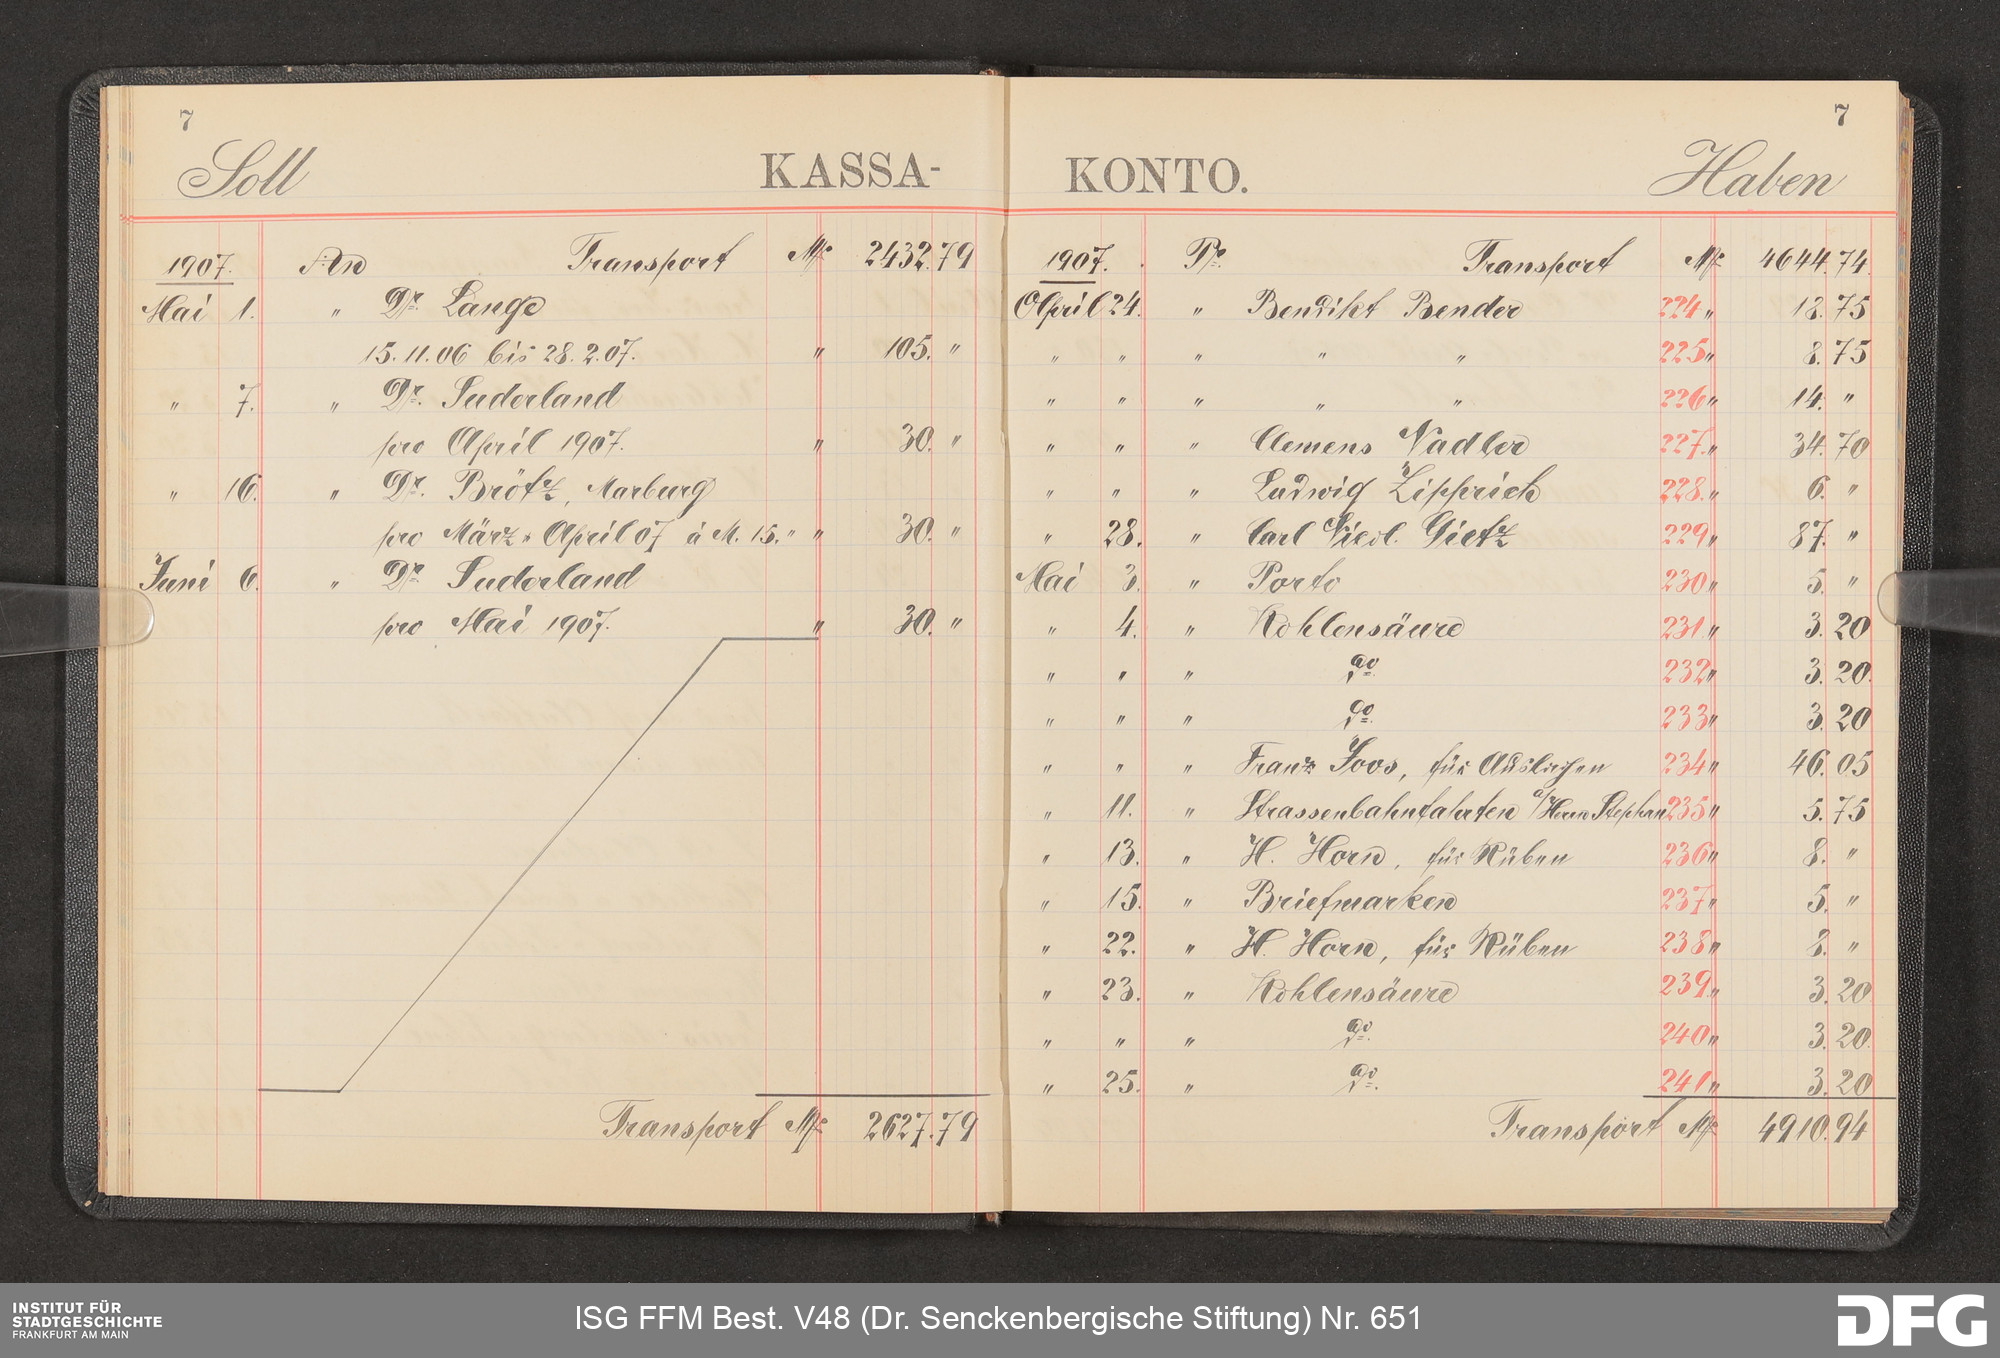 7
Soll KASSA-
1907. An Transport M 2432.79
Mai 1. " Dr. Lange
15.11.06 bis 28.2.07. " 105. "
" 7. " Dr. Suderland
pro April 1907. " 30. "
" 16. " Dr. Brötz, Marburg
pro März " April 07 à M. 15. " " 30. "
Juni 6. " Dr. Suderland
pro Mai 1907. " 30. "
Transport M 2627.79
7
KONTO. Haben
1907. Pr. Transport M 4644.74
April 24. " Bendikt Bender 224 " 18.75
" " " " " 225 " 8.75
" " " " " 226 " 14. "
" " " Clemens Nadler 227. " 34.70
" " " Ludwig Zipprich 228. " 6. "
" 28. " Carl Gietz 229 " 87. "
Mai 3. " Porto 230 " 5. "
" 4. " Kohlensäure 231 " 3.20
" " " do. 232 " 3.20.
" " " do. 233 " 3.20
" " " Franz Joos, für Auslagen 234 " 46.05
" 11. " Strassenbahnfahrten Herrn Stephan 235 " 5.75
" 13. " H. Horn, für Rüben 236 " 8. "
" 15. " Briefmarken 237 " 5. "
" 22. " H. Horn, für Rüben 238 " 8. "
" 23. " Kohlensäure 239. " 3.20
" " " do. 240 " 3.20.
" 25. " do. 241 " 3.20
Transport M 4910.94
INSTITUT FÜR
STADTGESCHICHTE
FRANKFURT AM MAIN
ISG FFM Best. V48 (Dr. Senckenbergische Stiftung) Nr. 651
DFG